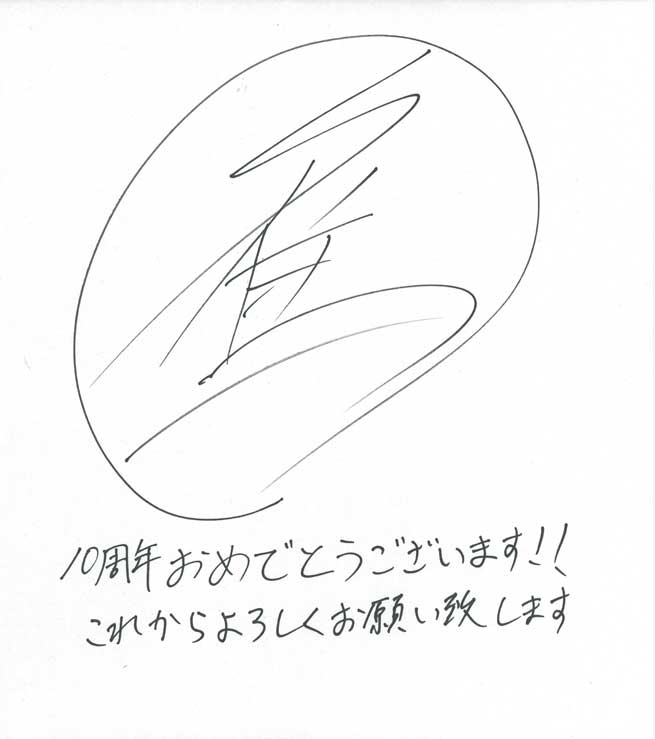 10周年おめでとうございます!!
これからよろしくお願い致します